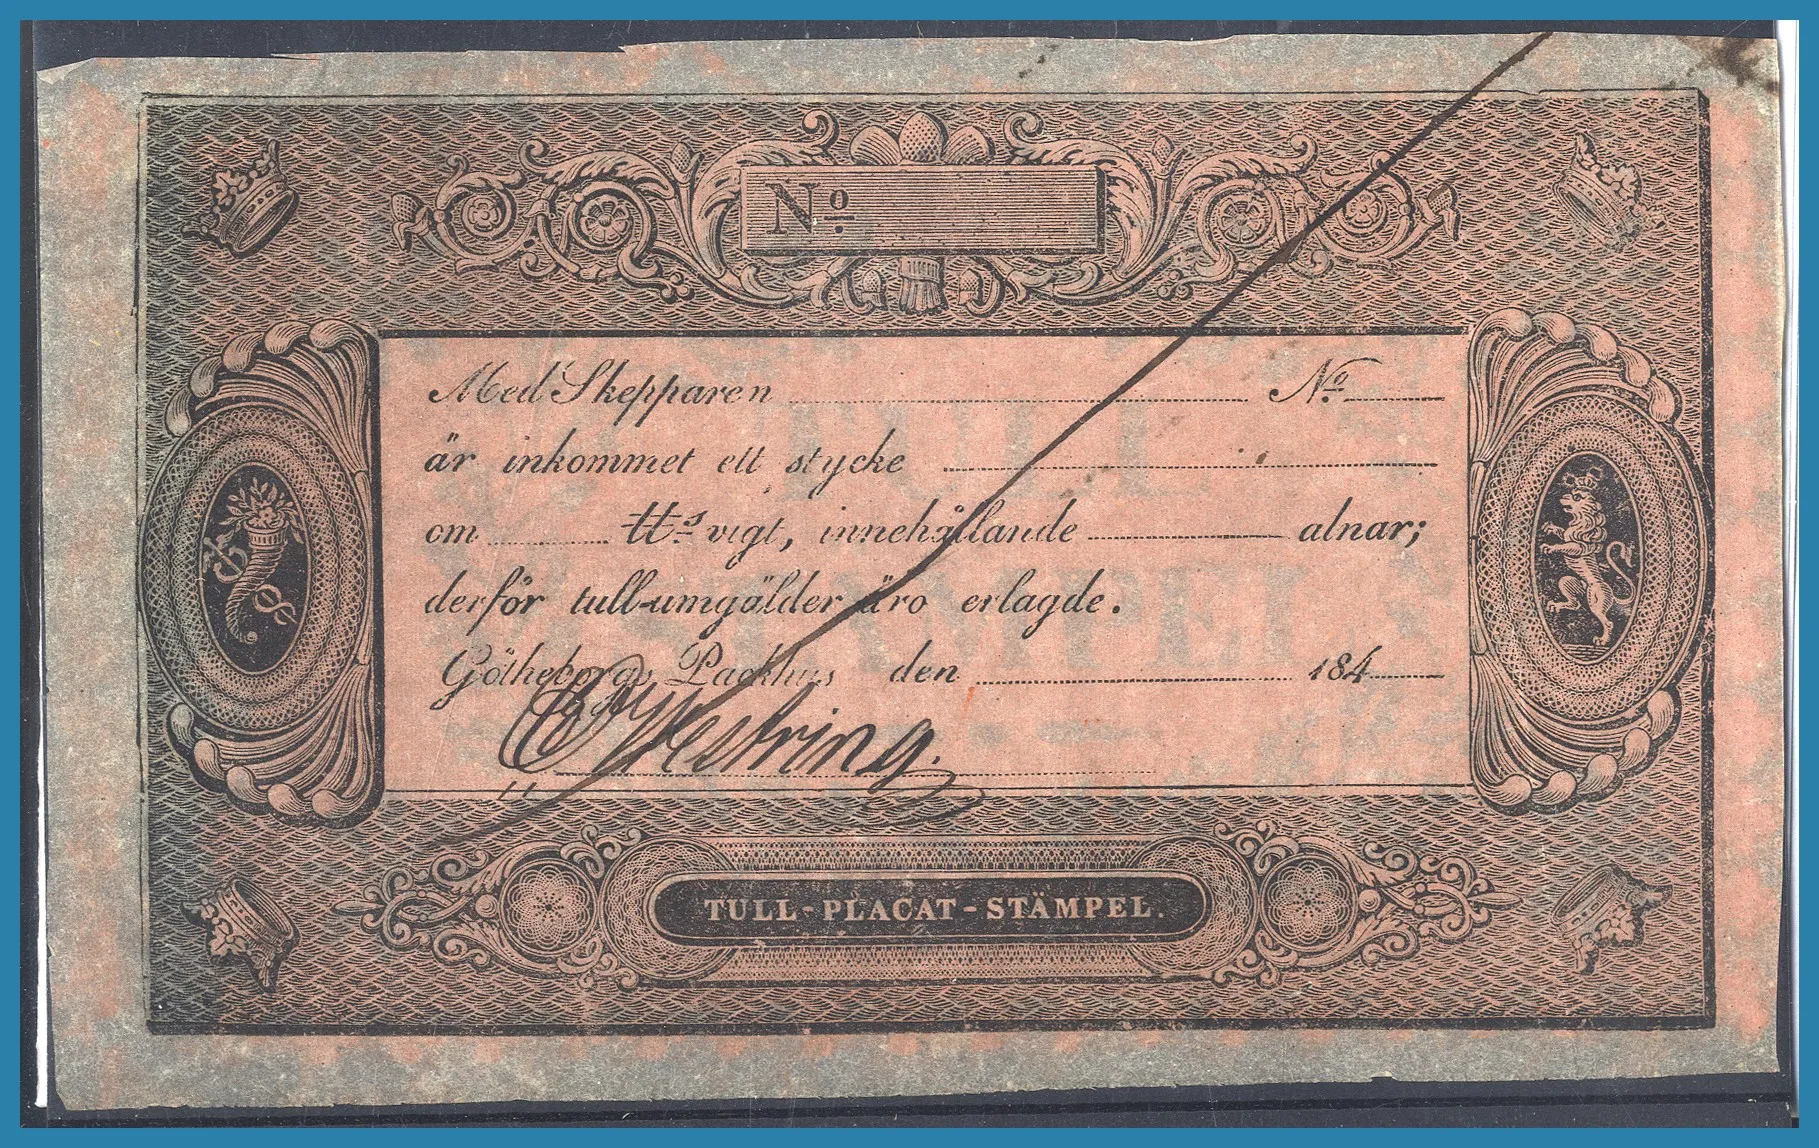 No.
Med Skepparen ........ No. ........
är inkommet ett stycke ........
om ........ ℔s vigt, innehållande ........ alnar;
derför tull-umgälder äro erlagde.
Götheborgs Packhus den ........ 184........
Westring.
TULL-PLACAT-STÄMPEL.